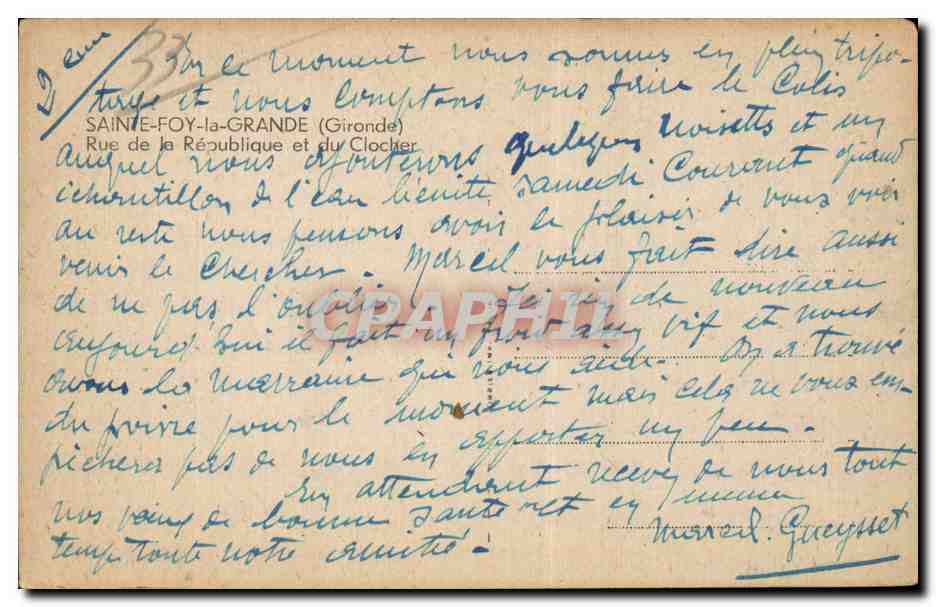 2eme
33
En ce moment nous sommes en plein tripo-
tage et nous comptons vous faire le Colis
SAINTE-FOY-la-GRANDE (Gironde)
Rue de la République et du Clocher
auquel nous ajouterons quelques noisettes et un
échantillon de l'eau bénite samedi Courant quand
au reste nous pensons avoir le plaisir de vous voir
venir le chercher. Marcel vous fait dire aussi
de ne pas l'oublier. Ici rien de nouveau
aujourd'hui il fait un froid assez vif et nous
avons la marraine qui nous aide. On a trouvé
du poivre pour le moment mais cela ne vous em-
pêchera pas de nous en apporter un peu.
En attendant recevez de nous tout
nos vœux de bonne santé et en même
temps toute notre amitié.
Marcel. Gueysset
CPARPHIL